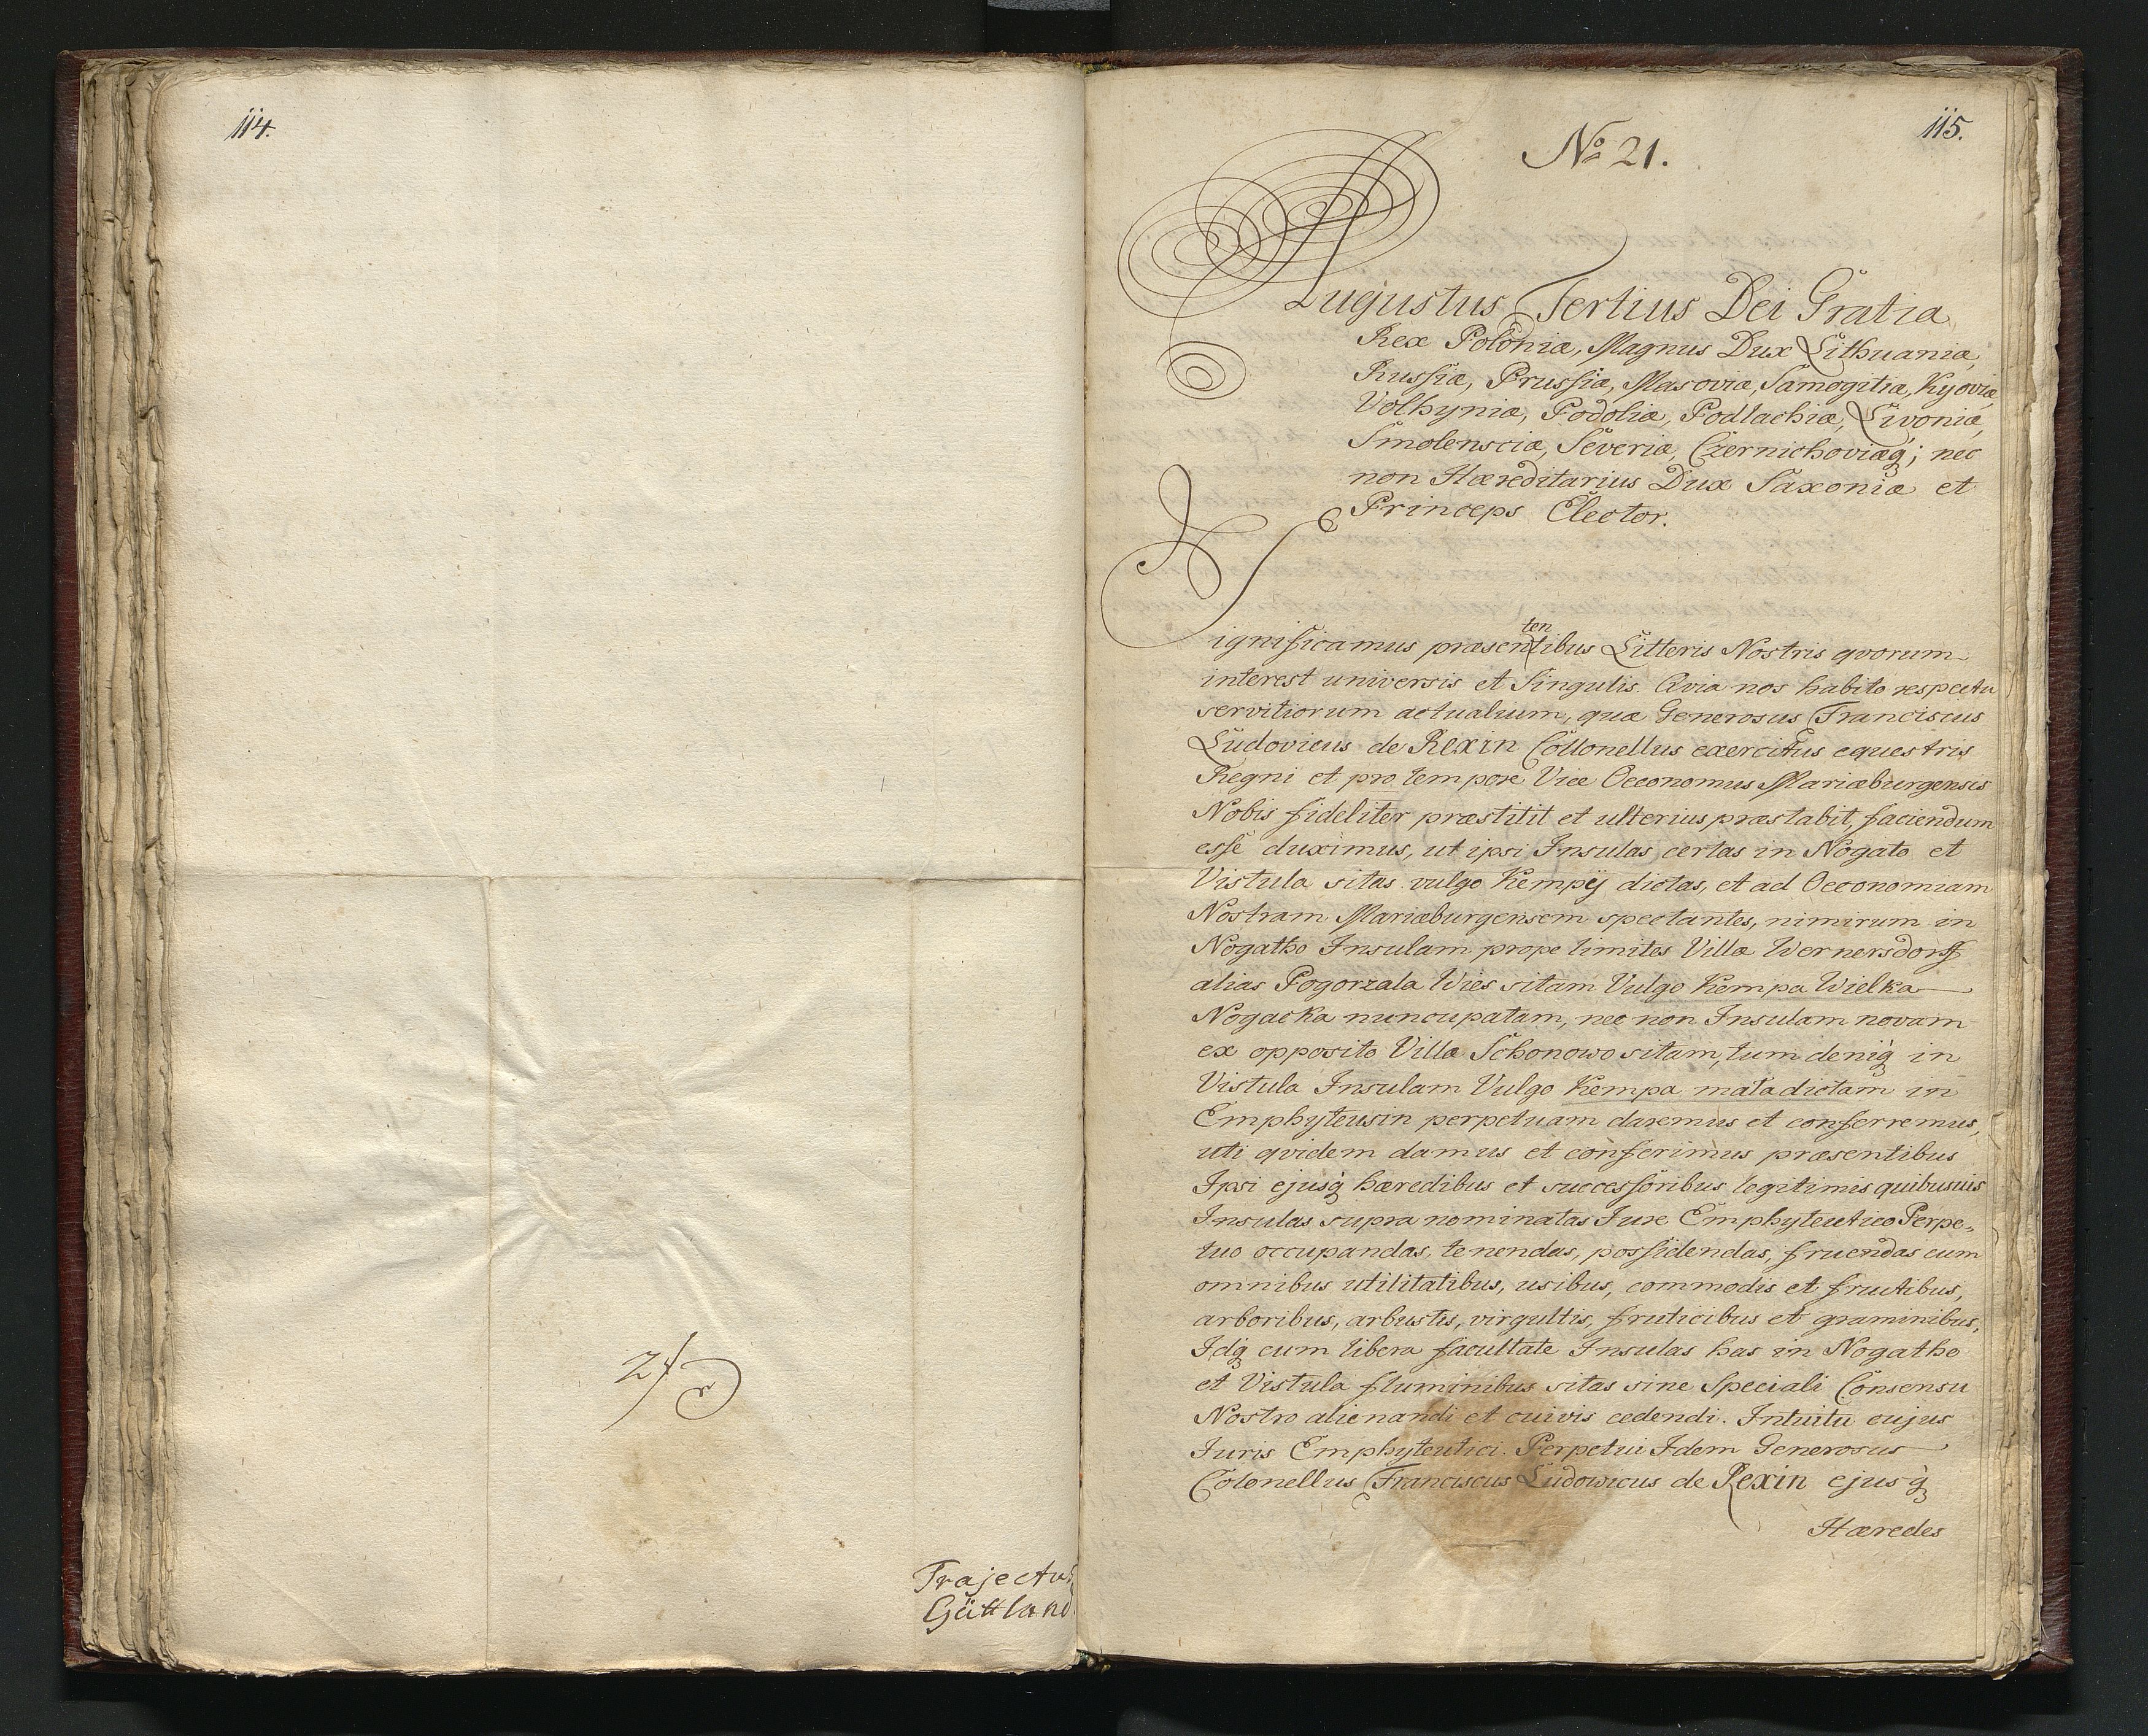 114.
Trajectus
Güttland
115.
No 21.
Augustus Tertius Dei Gratia
Rex Poloniæ, Magnus Dux Lithuaniæ,
Russiæ, Prussiæ, Masoviæ, Samogitiæ, Kyoviæ
Volhyniæ, Podoliæ, Podlachiæ, Livoniæ,
Smolensciæ, Severiæ, Czernichoviæq; nec
non Hæreditarius Dux Saxoniæ et
Princeps Elector.
ten
Significamus præsentibus Litteris Nostris qvorum
interest universis et Singulis. Qvia nos habito respectu
servitiorum actualium, quæ Generosus Franciscus
Ludovicus de Rexin Collonellus exercitus equestris
Regni et pro tempore Vice Oeconomus Mariæburgensis
Nobis fideliter præstitit et ulterius præstabit, faciendum
esse duximus, ut ipsi Insulas certas in Nogato et
Vistula sitas vulgo Kempÿ dictas, et ad Oeconomiam
Nostram Mariæburgensem spectantes, nimirum in
Nogatho Insulam prope limites Villæ Wernersdorff
alias Pogorzala Wies sitam Vulgo Kempa Wielka
Nogacka nuncupatam, nec non Insulam novam
ex opposito Villæ Schonowo sitam, tum deniq in
Vistula Insulam Vulgo Kempa mała dictam in
Emphyteusin perpetuam daremus et conferremus,
uti qvidem damus et conferimus præsentibus
Ipsi ejusq hæredibus et successoribus legitimis quibusvis
Insulas supra nominatas Jure Emphyteutico Perpe-
tuo occupandas, tenendas, possidendas, fruendas cum
omnibus utilitatibus, usibus, commodis et fructibus,
arboribus, arbustis, virgultis, fruticibus et graminibus,
Idq cum libera facultate Insulas has in Nogatho
et Vistula fluminibus sitas sine Speciali Consensu
Nostro alienandi et cuivis cedendi. Intuitu cujus
Juris Emphyteutici Perpetui Idem Generosus
Colonellus Franciscus Ludowicus de Rexin ejusq
Hæredes